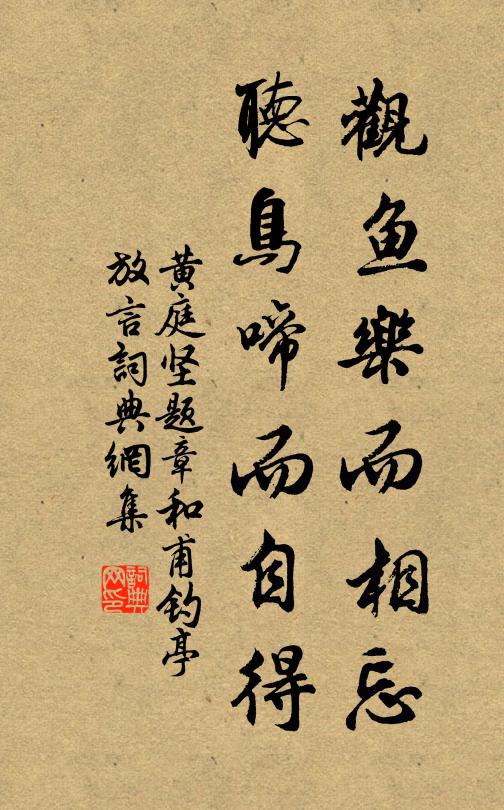 觀魚樂而相忘
聽鳥啼而自得
黄庭坚题章和甫钓亭
放言詞典網集
詞典網印